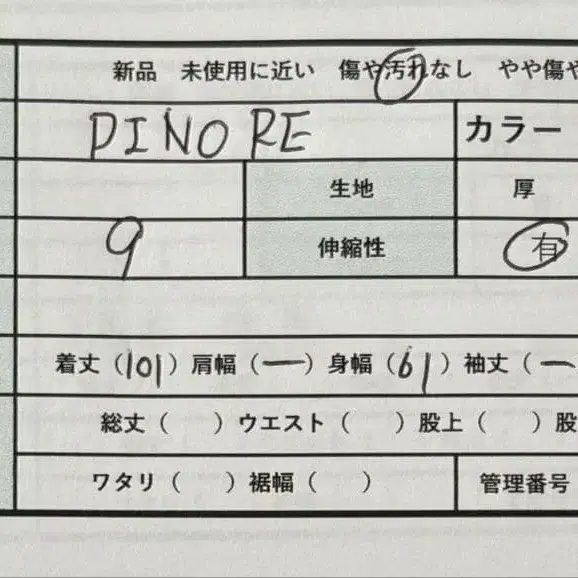 新品 未使用に近い 傷や汚れなし やや傷や
PINORE カラー
生地 厚
9 伸縮性 有
着丈(101) 肩幅(ー) 身幅(61) 袖丈(ー
総丈( ) ウエスト( ) 股上( ) 股
ワタリ( ) 裾幅( ) 管理番号